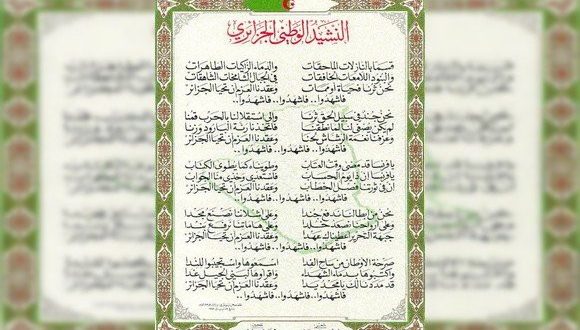 النشيد الوطني الجزائري
قسما بالنازلات الماحقات والدماء الزاكيات الطاهرات
والبنود اللامعات الخافقات في الجبال الشامخات الشاهقات
نحن ثرنا فحياة أو ممات وعقدنا العزم أن تحيا الجزائر
فاشهدوا.. فاشهدوا.. فاشهدوا..
نحن جند في سبيل الحق ثرنا وإلى استقلالنا بالحرب قمنا
لم يكن يصغى لنا لما نطقنا فاتخذنا رنة البارود وزنا
وعزفنا نغمة الرشاش لحنا وعقدنا العزم أن تحيا الجزائر
فاشهدوا.. فاشهدوا.. فاشهدوا..
يا فرنسا قد مضى وقت العتاب وطويناه كما يطوى الكتاب
يا فرنسا إن ذا يوم الحساب فاستعدي وخذي منا الجواب
إن في ثورتنا فصل الخطاب وعقدنا العزم أن تحيا الجزائر
فاشهدوا.. فاشهدوا.. فاشهدوا..
نحن من أبطالنا ندفع جندا وعلى أشلائنا نصنع مجدا
وعلى أرواحنا نصعد خلدا وعلى هاماتنا نرفع بندا
جبهة التحرير أعطيناك عهدا وعقدنا العزم أن تحيا الجزائر
فاشهدوا.. فاشهدوا.. فاشهدوا..
صرخة الأوطان من ساح الفدا اسمعوها واستجيبوا للندا
واكتبوها بدماء الشهداء واقرأوها لبني الجيل غدا
قد مددنا لك يا مجد يدا وعقدنا العزم أن تحيا الجزائر
فاشهدوا.. فاشهدوا.. فاشهدوا..